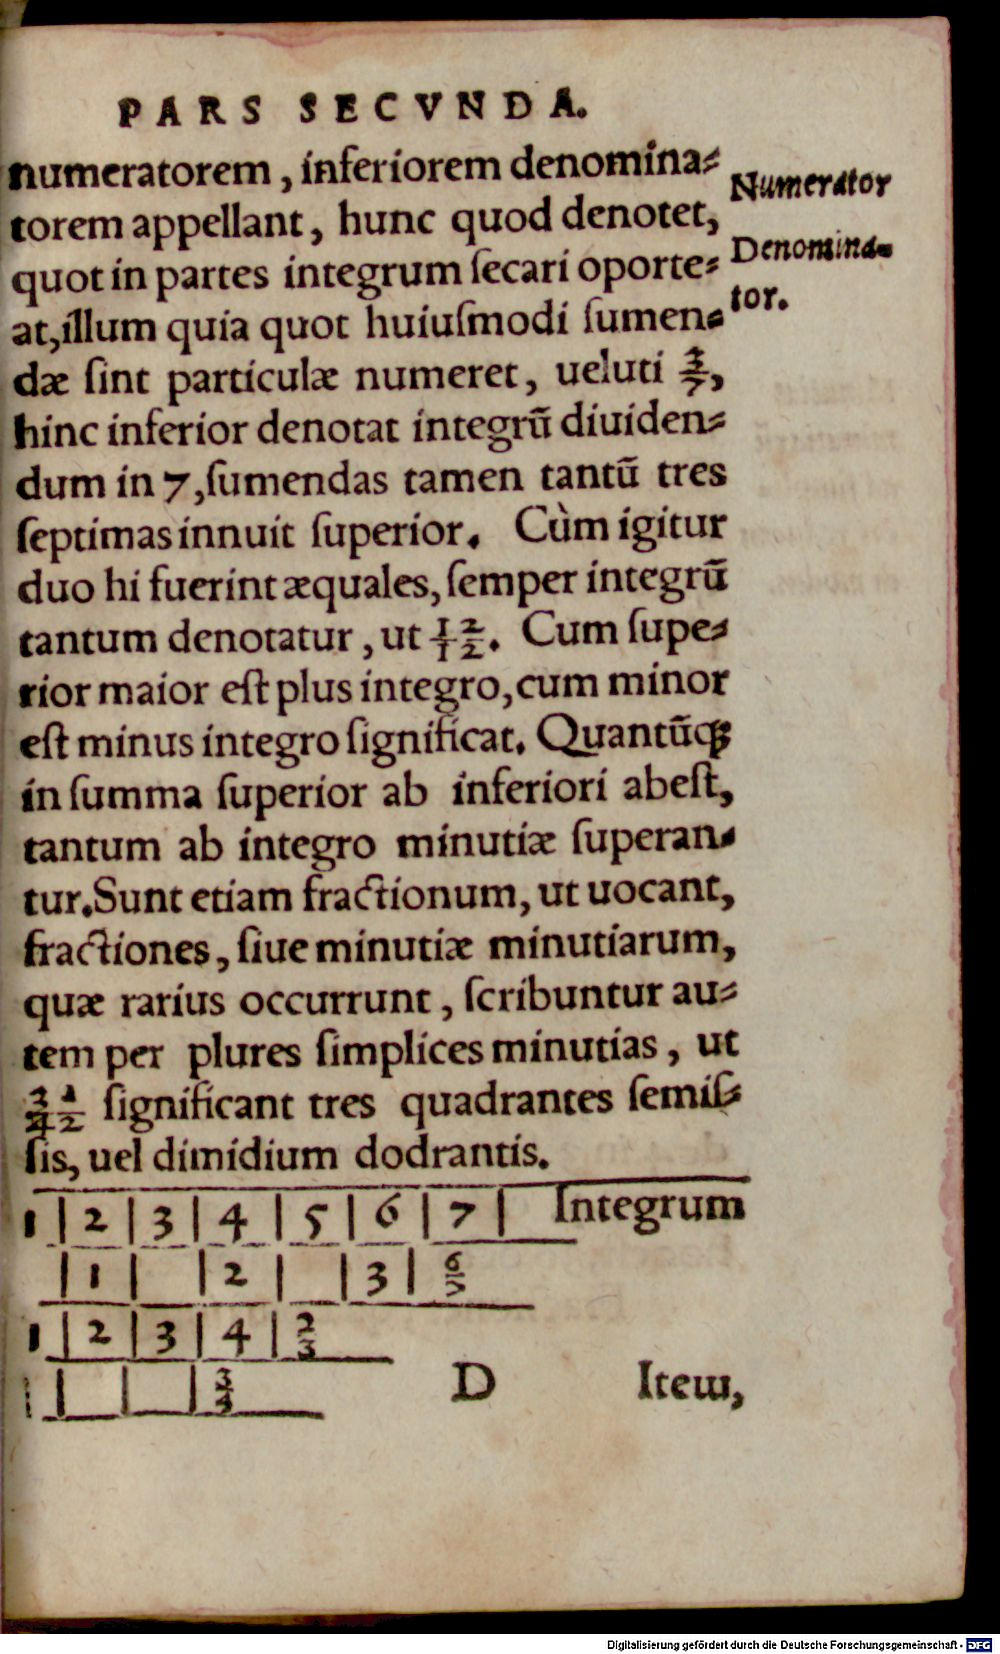 PARS SECVNDA.
numeratorem, inferiorem denomina⸗
torem appellant, hunc quod denotet,
quot in partes integrum ſecari oporte⸗
at, illum quia quot huiuſmodi ſumen⸗
dæ ſint particulæ numeret, ueluti 3/7,
hinc inferior denotat integrũ diuiden⸗
dum in 7, ſumendas tamen tantũ tres
ſeptimas innuit ſuperior. Cùm igitur
duo hi fuerint æquales, ſemper integrũ
tantum denotatur, ut 1/1 2/2. Cum ſupe⸗
rior maior eſt plus integro, cum minor
eſt minus integro ſignificat. Quantũq;
in ſumma ſuperior ab inferiori abeſt,
tantum ab integro minutiæ ſuperan⸗
tur. Sunt etiam fractionum, ut uocant,
fractiones, ſiue minutiæ minutiarum,
quæ rarius occurrunt, ſcribuntur au⸗
tem per plures ſimplices minutias, ut
3/4 1/2 ſignificant tres quadrantes ſemiſ⸗
ſis, uel dimidium dodrantis.
Numerator
Denomina⸗
tor.
1 | 2 | 3 | 4 | 5 | 6 | 7 | Integrum
| 1 | | 2 | | 3 | 6/7
1 | 2 | 3 | 4 | 2/3
| | | 3/4
D Item,
Digitalisierung gefördert durch die Deutsche Forschungsgemeinschaft - DFG